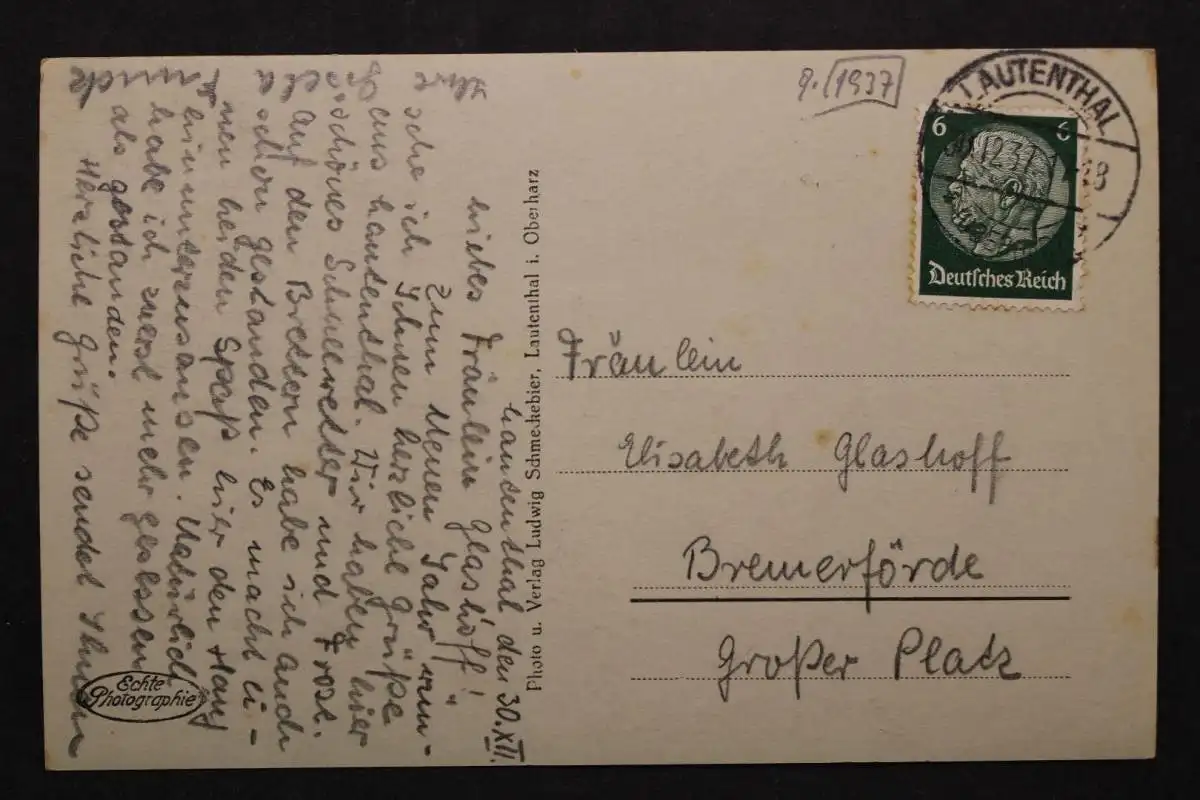 Lautenthal den 30.XII.
Liebes Fräulein Glashoff!
Zum neuen Jahr wün-
sche ich Ihnen herzliche Grüße
aus Lautenthal. Wir haben hier
schönes Schneewetter und Frost.
Auf den Brettern habe ich auch
schon gestanden. Es macht ei-
nen heiden Spaß hier den Hang
hinunterzusausen. Natürlich
habe ich zuerst mehr gesessen
als gestanden.
Herzliche Grüße sendet Ihnen
Ihre
Echte
Photographie
Photo u. Verlag Ludwig Schmeckebier, Lautenthal i. Oberharz
9. (1937)
LAUTENTHAL
30.12.37
6 6
Deutsches Reich
Fräulein
Elisabeth Glashoff
Bremerförde
Großer Platz